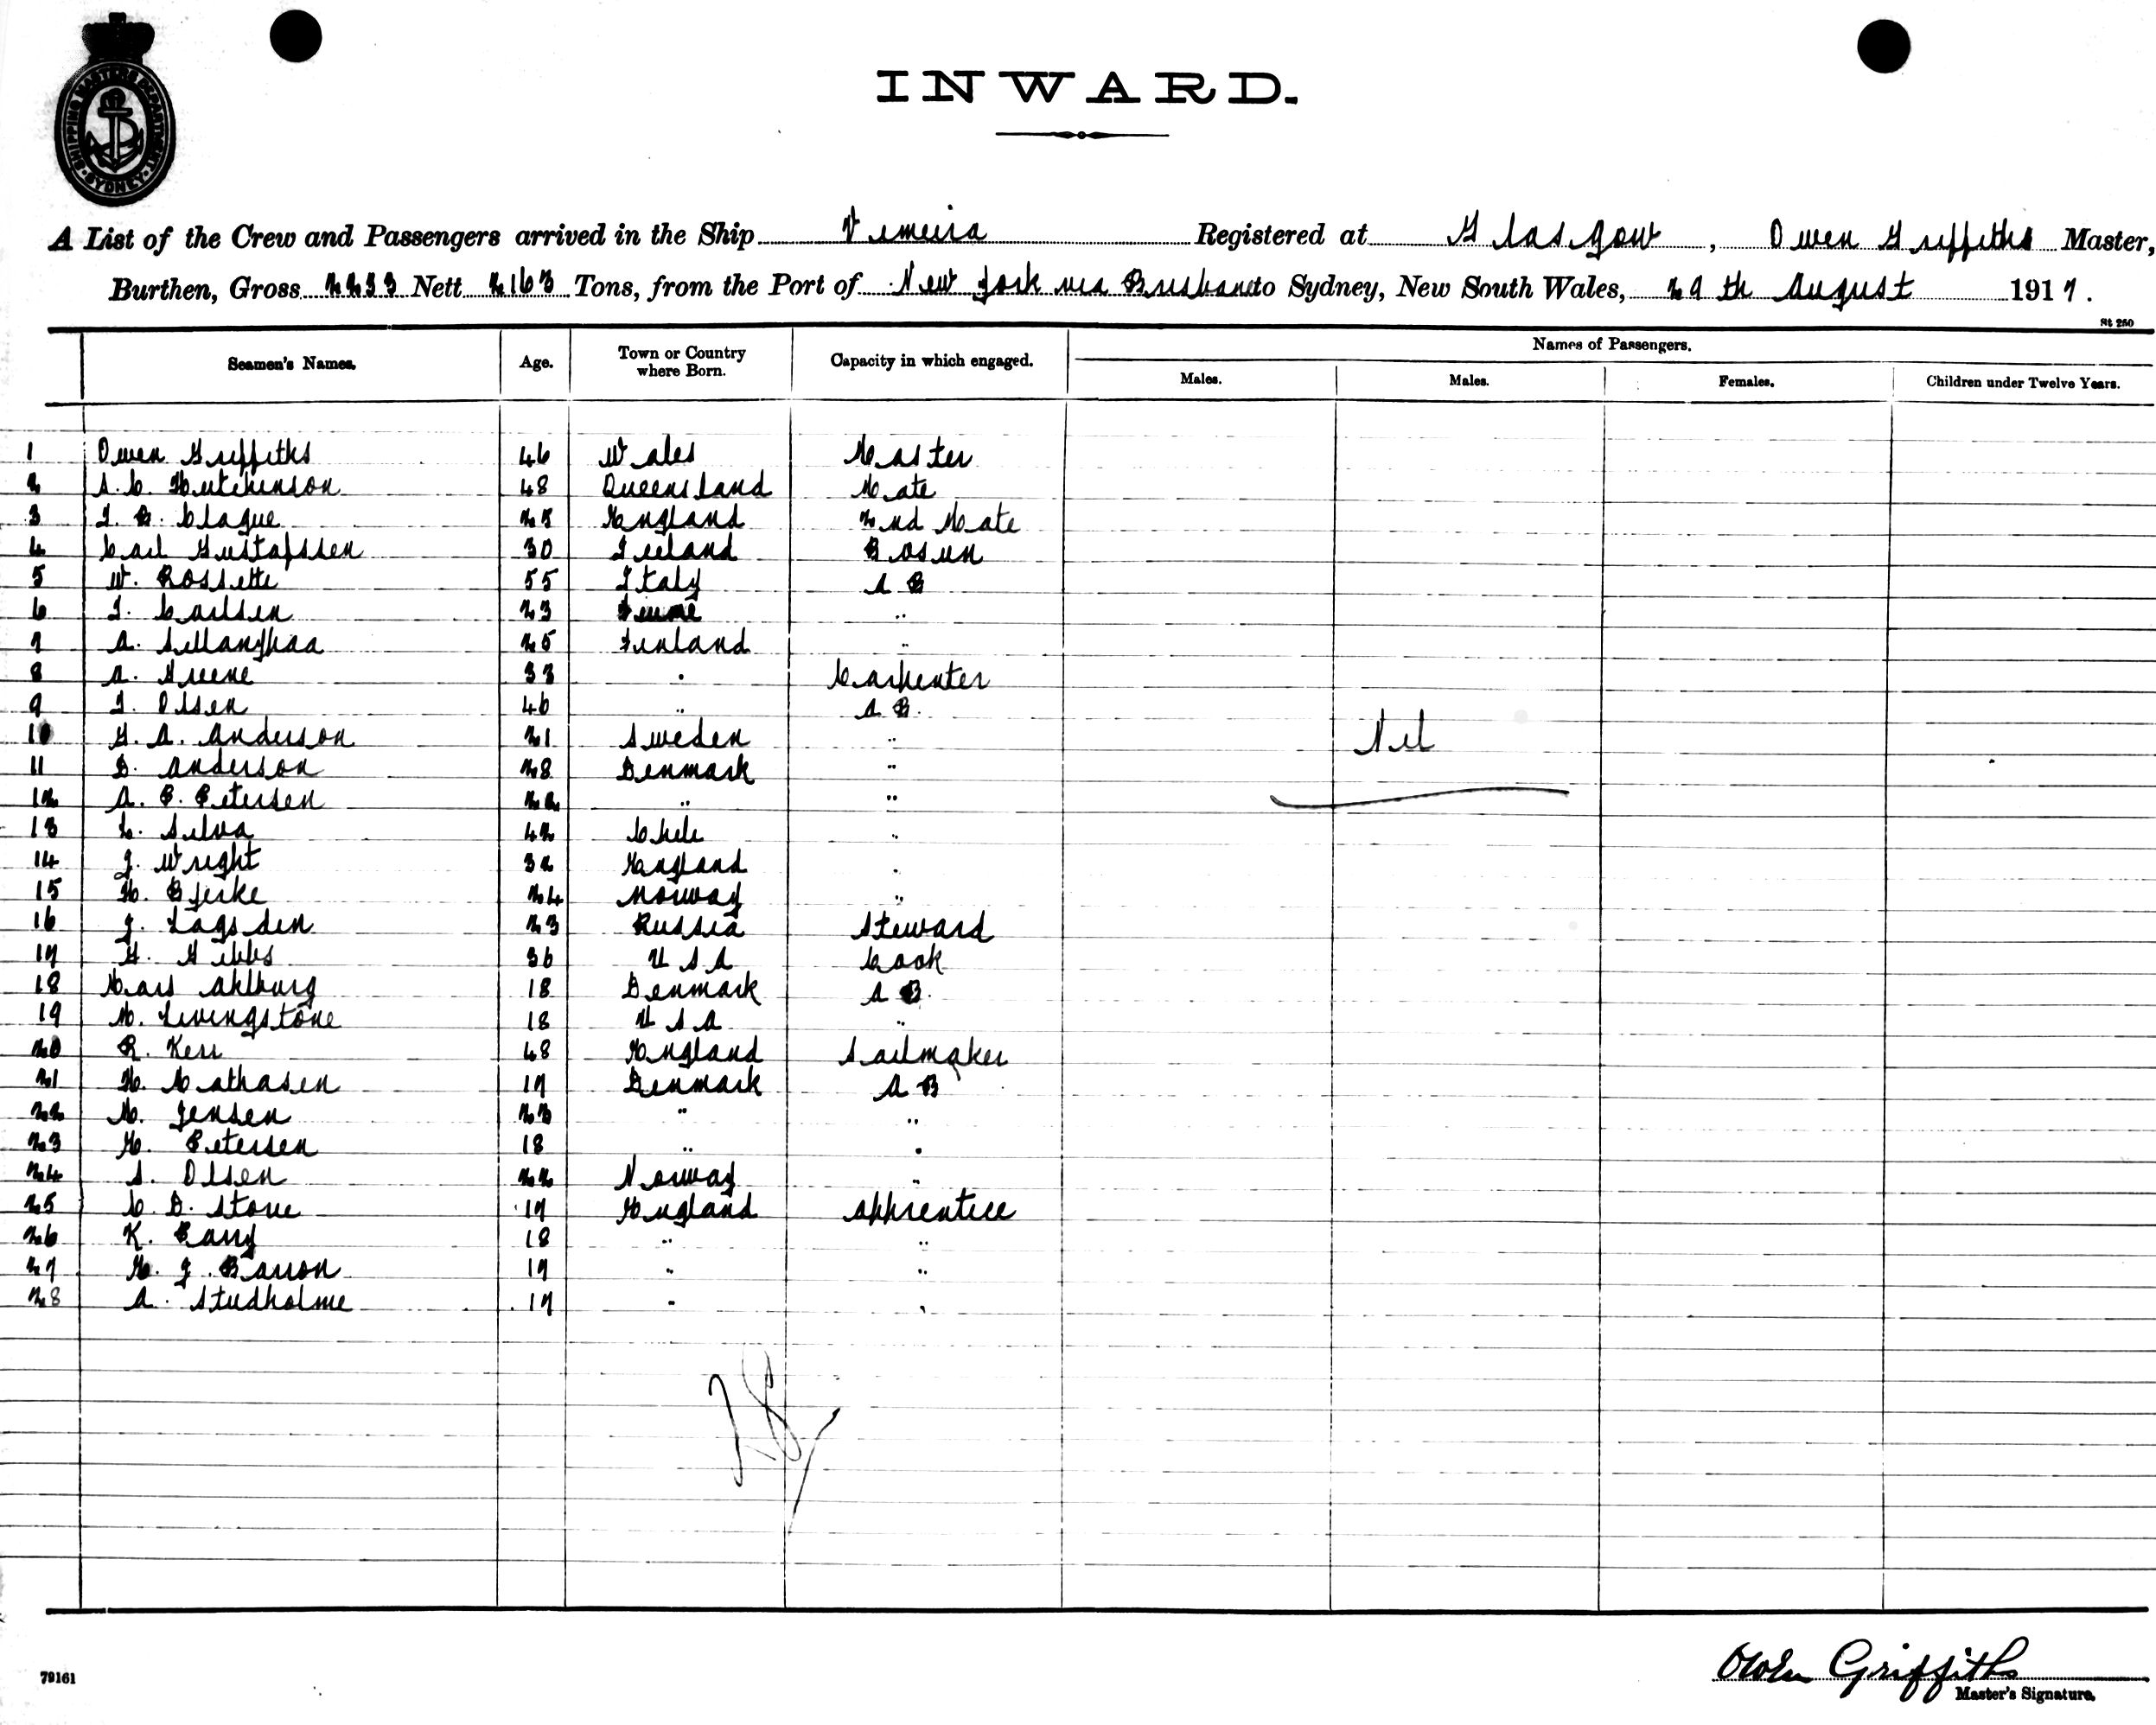 SHIPPING MASTERS DEPARTMENT SYDNEY
INWARD.
A List of the Crew and Passengers arrived in the Ship Vimeira Registered at Glasgow, Owen Griffiths Master,
Burthen, Gross 2233 Nett 2163 Tons, from the Port of New York via Brisbane to Sydney, New South Wales, 29th August 1917.
St 250
Seamen's Names. Age. Town or Country where Born. Capacity in which engaged. Names of Passengers.
Males. Males. Females. Children under Twelve Years.
1 Owen Griffiths 46 Wales Master
2 S. C. Hutchinson 48 Queensland Mate
3 T. B. Clague 25 England 2nd Mate
4 Carl Gustafssen 30 Ireland Bosun
5 W. Rossette 55 Italy A B
6 I. Carlsen 23 "
7 A. 25 Finland "
8 A. Greene 33 " Carpenter
9 I. Olsen 46 " A B.
10 G. A. Anderson 21 Sweden "
Nil
11 D. Anderson 28 Denmark "
12 A. P. Petersen 22 " "
13 L. Silva 42 Chile "
14 J. Wright 32 England "
15 H. Bjerke 24 Norway "
16 J. Lagsden 23 Russia Steward
17 G. Gibbs 36 U S A Cook
18 Mars Ahlburg 18 Denmark A B.
19 M. Livingstone 18 U S A "
20 R. Kerr 48 England Sailmaker
21 H. Mathasen 17 Denmark A B
22 M. Jensen 23 " "
23 H. Petersen 18 " "
24 S. Olsen 22 Norway "
25 C. D. Stone 17 England Apprentice
26 K. Parry 18 " "
27 H. J. Barron 17 " "
28 A. Studholme 17 " "
Owen Griffiths
79161
Master's Signature.